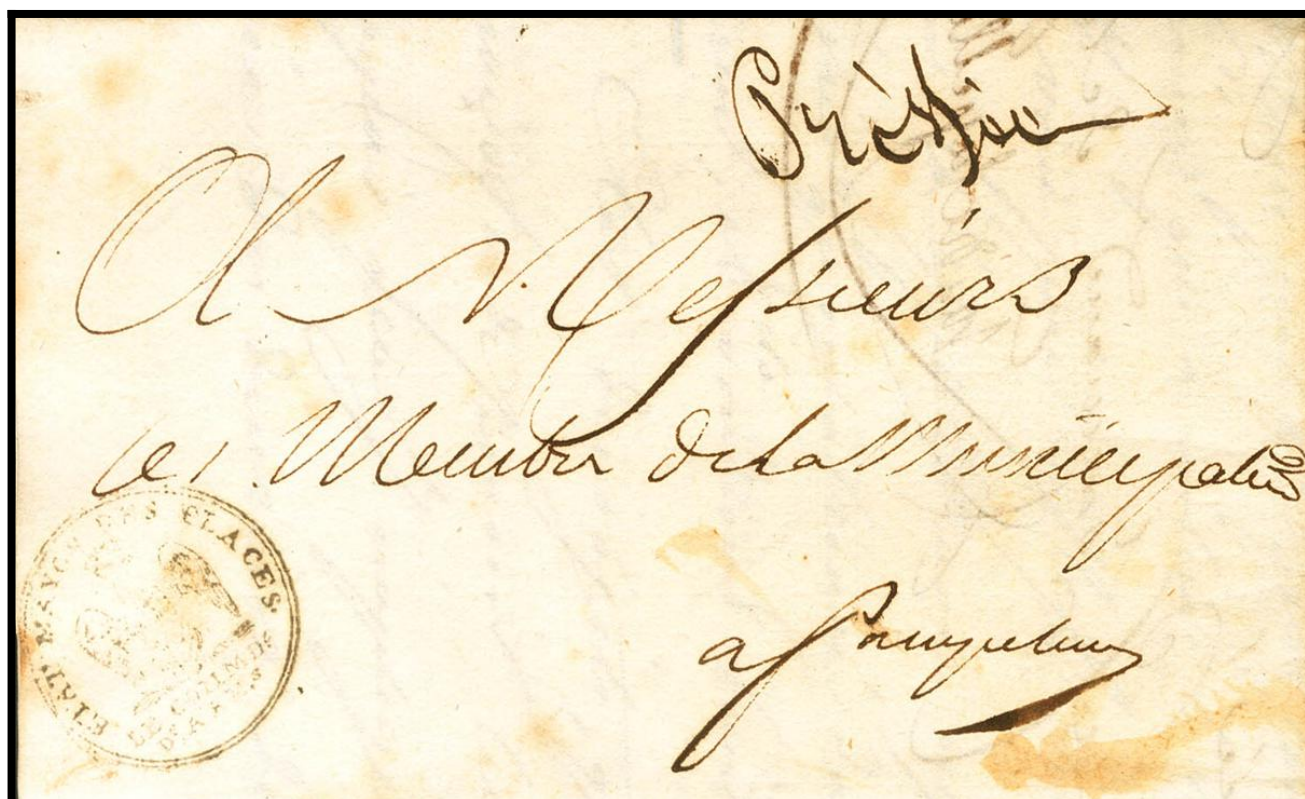 Pressée
A Messieurs
les Membres de la Municipalité
a Pampelune
ETAT MAYOR DES PLACES.
LE